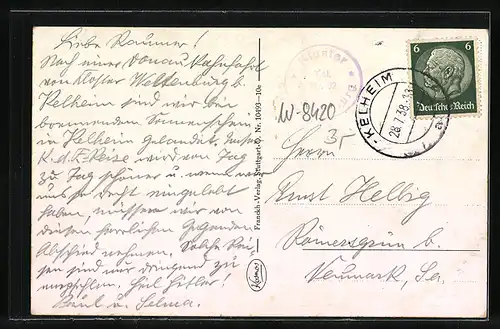 Liebe Raumer!
Nach einer Donau Kahnfahrt
von Kloster Weltenburg b.
Kelheim sind wir bei
brennendem Sonnenschein
in Kelheim gelandet. Unsere
K.d.F. Reise wird von Tag
zu Tag schöner u. wenn wir
uns so recht eingelebt
haben, müssen wir von
diesen herrlichen Gegenden
Abschied nehmen. Solche Rei-
sen sind nur dringend zu
empfehlen. Heil Hitler!
Paul u. Selma.
Franckh-Verlag, Stuttgart-O. Nr. 10493-Do
W-8420
35
KELHEIM
28.7.38.
6 6
Deutsches Reich
Herrn
Ernst Helbig
Römersgrün b.
Neumark, Sa.